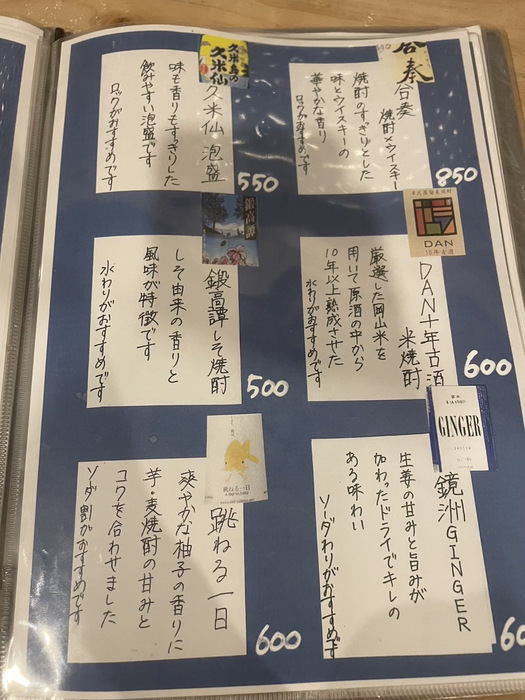 合奏
合奏
焼酎×ウイスキー
焼酎のすっきりとした
味とウイスキーの
華やかな香り
ロックがおすすめです
850
久米島の
久米仙
久米仙 泡盛
味も香りもすっきりした
飲みやすい泡盛です
ロックがおすすめです
550
DAN
10年古酒
DAN十年古酒
米焼酎
厳選した岡山米を
用いて原酒の中から
10年以上熟成させた
水わりがおすすめです
600
鍛高譚
鍛高譚しそ焼酎
しそ由来の香りと
風味が特徴です
水わりがおすすめです
500
GINGER
鏡洲GINGER
生姜の甘みと旨みが
加わったドライでキレの
ある味わい
ソーダわりがおすすめです
60
跳ねる一日
跳ねる一日
爽やかな柚子の香りに
芋・麦焼酎の甘みと
コクを合わせました
ソーダ割がおすすめです
600